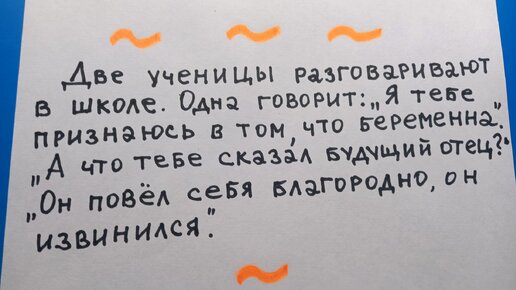 Две ученицы разговаривают
в школе. Одна говорит: „Я тебе
признаюсь в том, что беременна."
„А что тебе сказал будущий отец?"
„Он повёл себя благородно, он
извинился."